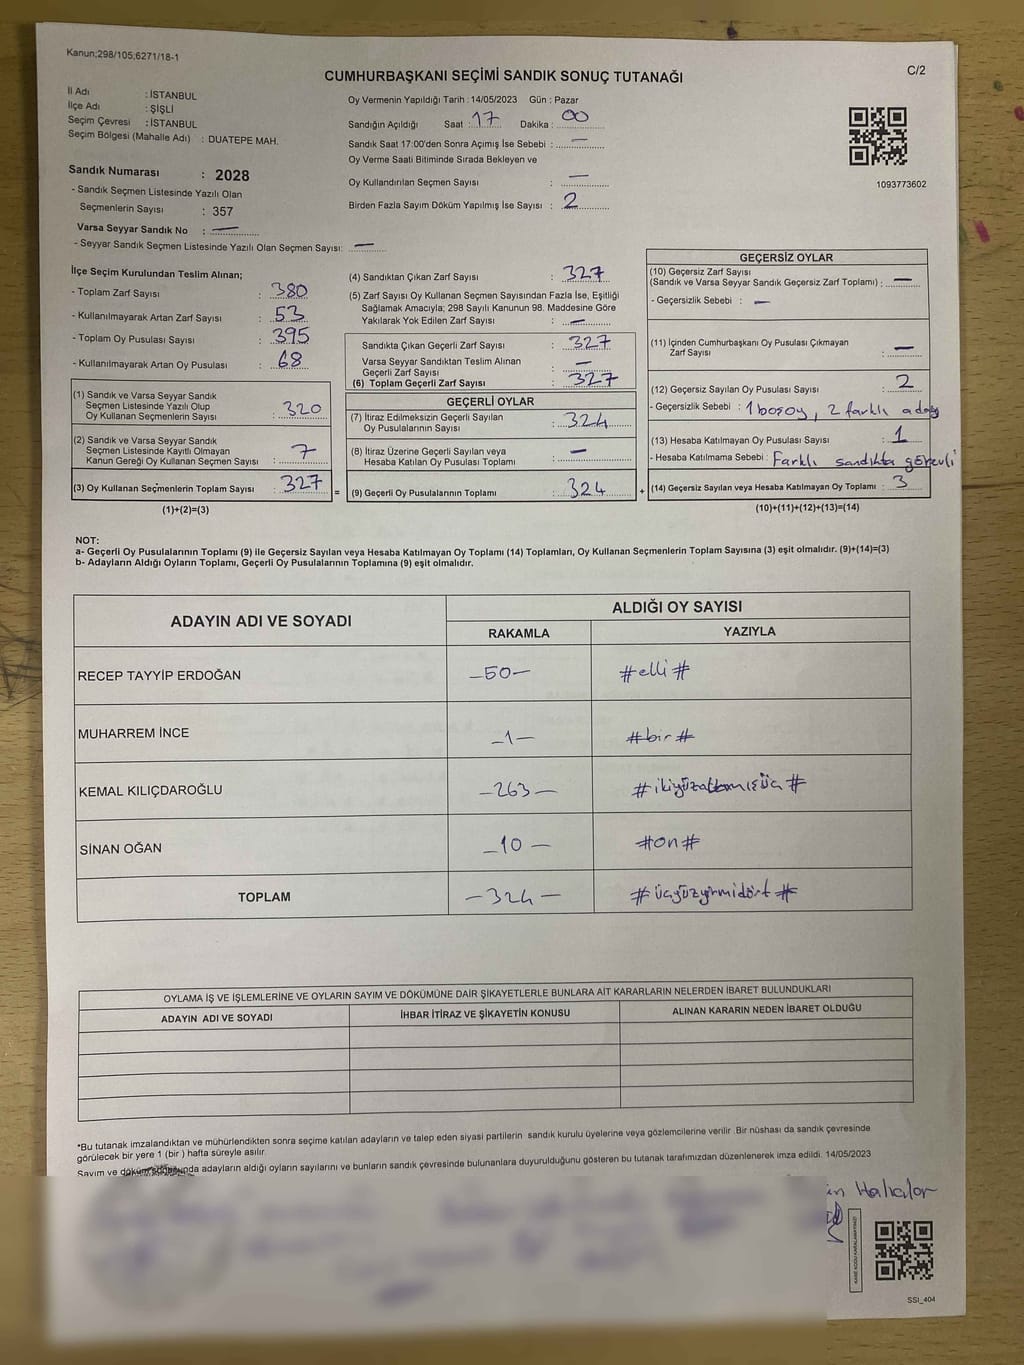 Kanun;298/105;6271/18-1
C/2
CUMHURBAŞKANI SEÇİMİ SANDIK SONUÇ TUTANAĞI
İl Adı : İSTANBUL
İlçe Adı : ŞİŞLİ
Seçim Çevresi : İSTANBUL
Seçim Bölgesi (Mahalle Adı) : DUATEPE MAH.
Sandık Numarası : 2028
- Sandık Seçmen Listesinde Yazılı Olan
Seçmenlerin Sayısı : 357
Varsa Seyyar Sandık No : —
- Seyyar Sandık Seçmen Listesinde Yazılı Olan Seçmen Sayısı: —
Oy Vermenin Yapıldığı Tarih : 14/05/2023 Gün : Pazar
Sandığın Açıldığı Saat : 17 Dakika : 00
Sandık Saat 17:00'den Sonra Açımış İse Sebebi : —
Oy Verme Saati Bitiminde Sırada Bekleyen ve
Oy Kullandırılan Seçmen Sayısı : —
Birden Fazla Sayım Döküm Yapılmış İse Sayısı : 2
1093773602
İlçe Seçim Kurulundan Teslim Alınan;
- Toplam Zarf Sayısı : 380
- Kullanılmayarak Artan Zarf Sayısı : 53
- Toplam Oy Pusulası Sayısı : 395
- Kullanılmayarak Artan Oy Pusulası : 68
(1) Sandık ve Varsa Seyyar Sandık
Seçmen Listesinde Yazılı Olup
Oy Kullanan Seçmenlerin Sayısı : 320
(2) Sandık ve Varsa Seyyar Sandık
Seçmen Listesinde Kayıtlı Olmayan
Kanun Gereği Oy Kullanan Seçmen Sayısı : 7
(3) Oy Kullanan Seçmenlerin Toplam Sayısı : 327
(1)+(2)=(3)
(4) Sandıktan Çıkan Zarf Sayısı : 327
(5) Zarf Sayısı Oy Kullanan Seçmen Sayısından Fazla İse, Eşitliği
Sağlamak Amacıyla; 298 Sayılı Kanunun 98. Maddesine Göre
Yakılarak Yok Edilen Zarf Sayısı : —
Sandıkta Çıkan Geçerli Zarf Sayısı : 327
Varsa Seyyar Sandıktan Teslim Alınan
Geçerli Zarf Sayısı : —
(6) Toplam Geçerli Zarf Sayısı : 327
GEÇERLİ OYLAR
(7) İtiraz Edilmeksizin Geçerli Sayılan
Oy Pusulalarının Sayısı : 324
(8) İtiraz Üzerine Geçerli Sayılan veya
Hesaba Katılan Oy Pusulası Toplamı : —
= (9) Geçerli Oy Pusulalarının Toplamı : 324 +
GEÇERSİZ OYLAR
(10) Geçersiz Zarf Sayısı
(Sandık ve Varsa Seyyar Sandık Geçersiz Zarf Toplamı) : —
- Geçersizlik Sebebi : —
(11) İçinden Cumhurbaşkanı Oy Pusulası Çıkmayan
Zarf Sayısı : —
(12) Geçersiz Sayılan Oy Pusulası Sayısı : 2
- Geçersizlik Sebebi : 1 boş oy, 2 farklı aday
(13) Hesaba Katılmayan Oy Pusulası Sayısı : 1
- Hesaba Katılmama Sebebi : Farklı sandıkta görevli
(14) Geçersiz Sayılan veya Hesaba Katılmayan Oy Toplamı : 3
(10)+(11)+(12)+(13)=(14)
NOT:
a- Geçerli Oy Pusulalarının Toplamı (9) ile Geçersiz Sayılan veya Hesaba Katılmayan Oy Toplamı (14) Toplamları, Oy Kullanan Seçmenlerin Toplam Sayısına (3) eşit olmalıdır. (9)+(14)=(3)
b- Adayların Aldığı Oyların Toplamı, Geçerli Oy Pusulalarının Toplamına (9) eşit olmalıdır.
ADAYIN ADI VE SOYADI
ALDIĞI OY SAYISI
RAKAMLA YAZIYLA
RECEP TAYYİP ERDOĞAN —50— #elli#
MUHARREM İNCE —1— #bir#
KEMAL KILIÇDAROĞLU —263— #ikiyüzaltmışüç#
SİNAN OĞAN —10— #on#
TOPLAM —324— #üçyüzyirmidört#
OYLAMA İŞ VE İŞLEMLERİNE VE OYLARIN SAYIM VE DÖKÜMÜNE DAİR ŞİKAYETLERLE BUNLARA AİT KARARLARIN NELERDEN İBARET BULUNDUKLARI
ADAYIN ADI VE SOYADI İHBAR İTİRAZ VE ŞİKAYETİN KONUSU ALINAN KARARIN NEDEN İBARET OLDUĞU
*Bu tutanak imzalandıktan ve mühürlendikten sonra seçime katılan adayların ve talep eden siyasi partilerin sandık kurulu üyelerine veya gözlemcilerine verilir .Bir nüshası da sandık çevresinde
görülecek bir yere 1 (bir ) hafta süreyle asılır.
Sayım ve döküm sonucunda adayların aldığı oyların sayılarını ve bunların sandık çevresinde bulunanlara duyurulduğunu gösteren bu tutanak tarafımızdan düzenlenerek imza edildi. 14/05/2023
SSI_404